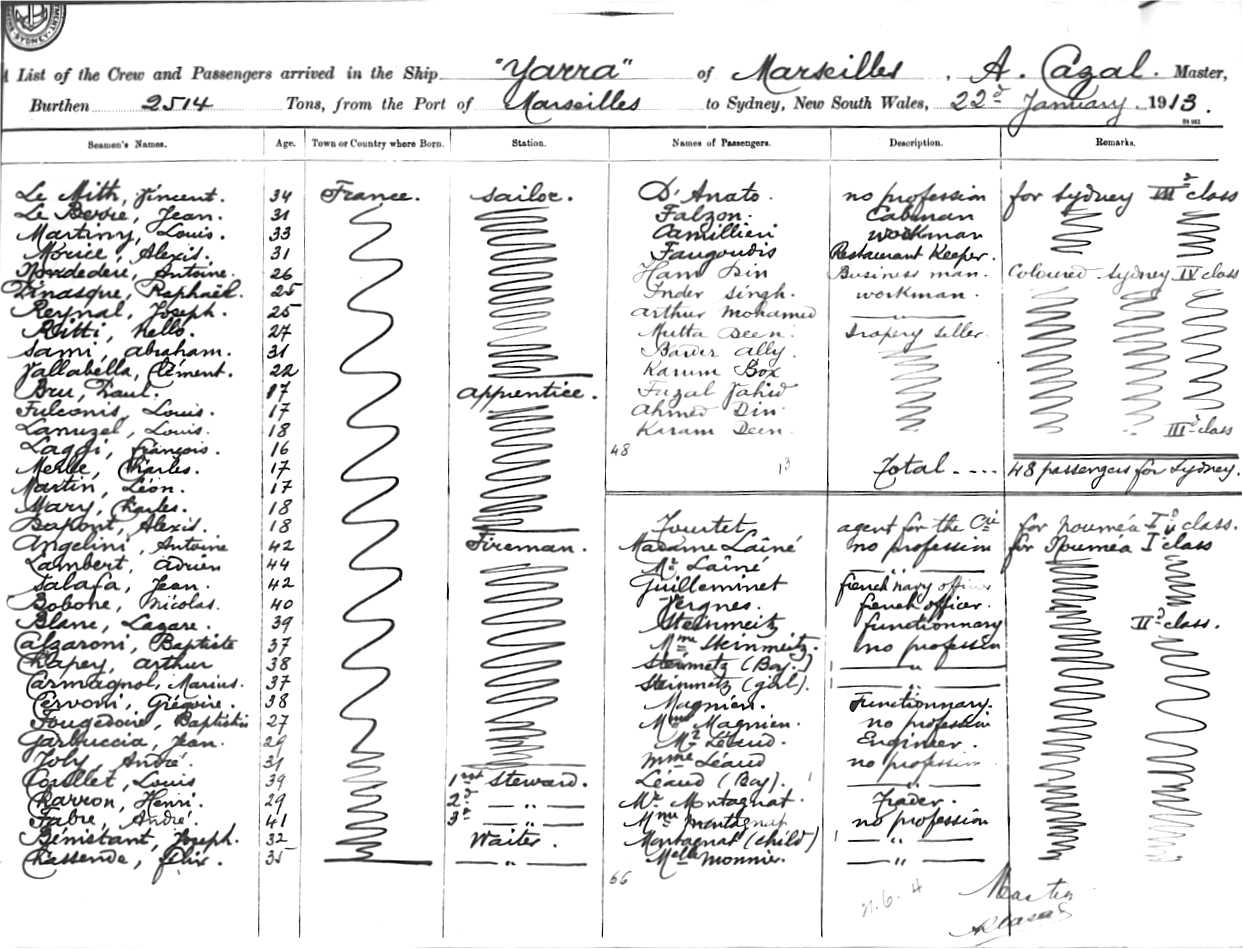 A List of the Crew and Passengers arrived in the Ship "Yarra" of Marseilles, A. Cazal. Master,
Burthen 2514 Tons, from the Port of Marseilles to Sydney, New South Wales, 22d January. 1913.
Seamen's Names. Age. Town or Country where Born. Station. Names of Passengers. Description. Remarks.
Le Mith, Vincent. 34 France. Sailor. D'Anato. no profession for Sydney IIId class
Le Berrie, Jean. 31 Falzon. Cabman
Martiny, Louis. 33 Camillieri workman
Morice, Alexis. 31 Faugoudis Restaurant Keeper.
Antoine. 26 Ham Din Business man. Coloured Sydney IV class
Dinasque, Raphaël. 25 Inder Singh. workman.
Reynal, Joseph. 25 Arthur Mohamed — " —
Ritti, Nello. 27 Mutta Deen. Drapery seller.
Sami, Abraham. 31 Ally.
Vallabella, Clément. 22 Karum Box
Bru, Paul. 17 Apprentice. Fuzal Vahid
Fulconis, Louis. 17 Ahmed Din.
Lanuzel, Louis. 18 Karam Deen. IIId class
Laggi, François. 16 48
Merle, Charles. 17 13 Total ---- 48 passengers for Sydney.
Martin, Léon. 17
Mary, Charles. 18
Dupont, Alexis. 18 Fourtet agent for the Cie for Nouméa I class.
Angelini, Antoine 42 Fireman. Madame Lainé no profession for Nouméa I class
Lambert, Adrien 44 Mr Lainé
Salafa, Jean. 42 Guilleminet french navy officer
Bobone, Nicolas. 40 Vergnes. french officer.
Blanc, Lazare. 39 Steinmeitz functionnary IId class.
Calzaroni, Baptiste 37 Mme Steinmeitz. no profession
Chapey, Arthur 38 Steinmetz (Boy.) — " —
Carmagnol, Marius. 37 Steinmetz (girl). — " —
Cervoni, Grégoire. 38 Magnien. Functionnary.
Fougedoire, Baptistin 27 Mme Magnien. no profession
Garbuccia, Jean. 29 Mr Léaud. Engineer.
Joly, André. 31 Mme Léaud no profession
Coullet, Louis 39 1st Steward. Léaud (Boy). — " —
Charron, Henri. 29 2d — " — Mr Montagnat. Trader.
Fabre, André. 41 3d — " — Mme Montagnat no profession
Bénistant, Joseph. 32 Waiter. Montagnat (child) — " —
Chassende, Félix. 35 — " — Melle Monnier. — " —
66
n.6.4